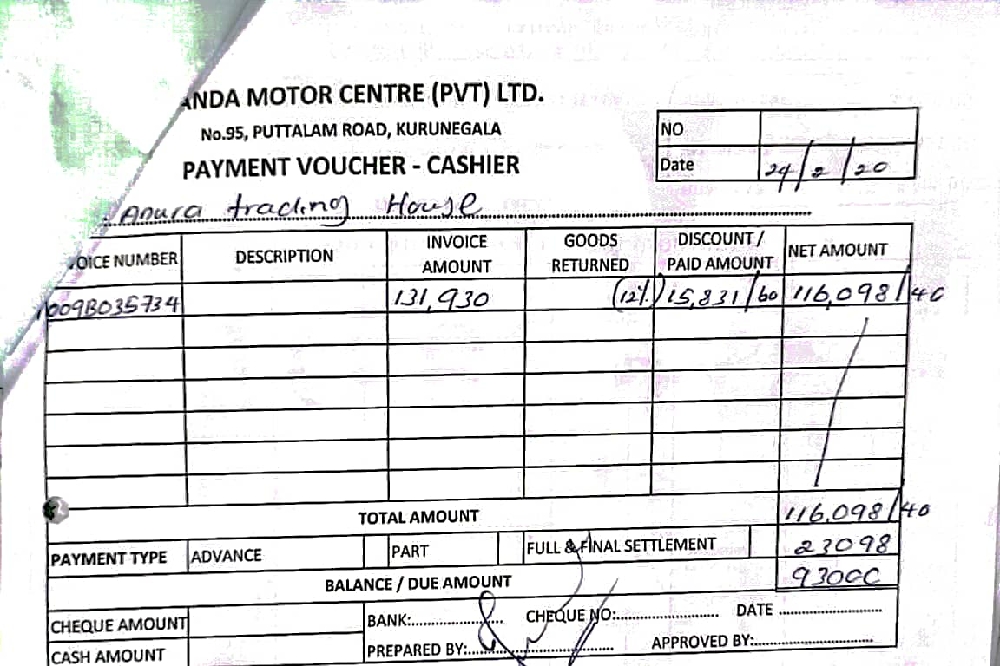 ANDA MOTOR CENTRE (PVT) LTD.
No.95, PUTTALAM ROAD, KURUNEGALA
PAYMENT VOUCHER - CASHIER
NO
Date 29/2/20
Anura trading House
OICE NUMBER DESCRIPTION INVOICE AMOUNT GOODS RETURNED DISCOUNT / PAID AMOUNT NET AMOUNT
009B035734 131,930 (12%) 15,831/60 116,098/40
TOTAL AMOUNT 116,098/40
PAYMENT TYPE ADVANCE PART FULL & FINAL SETTLEMENT 23098
BALANCE / DUE AMOUNT 93000
CHEQUE AMOUNT BANK: CHEQUE NO: DATE
CASH AMOUNT PREPARED BY: APPROVED BY: